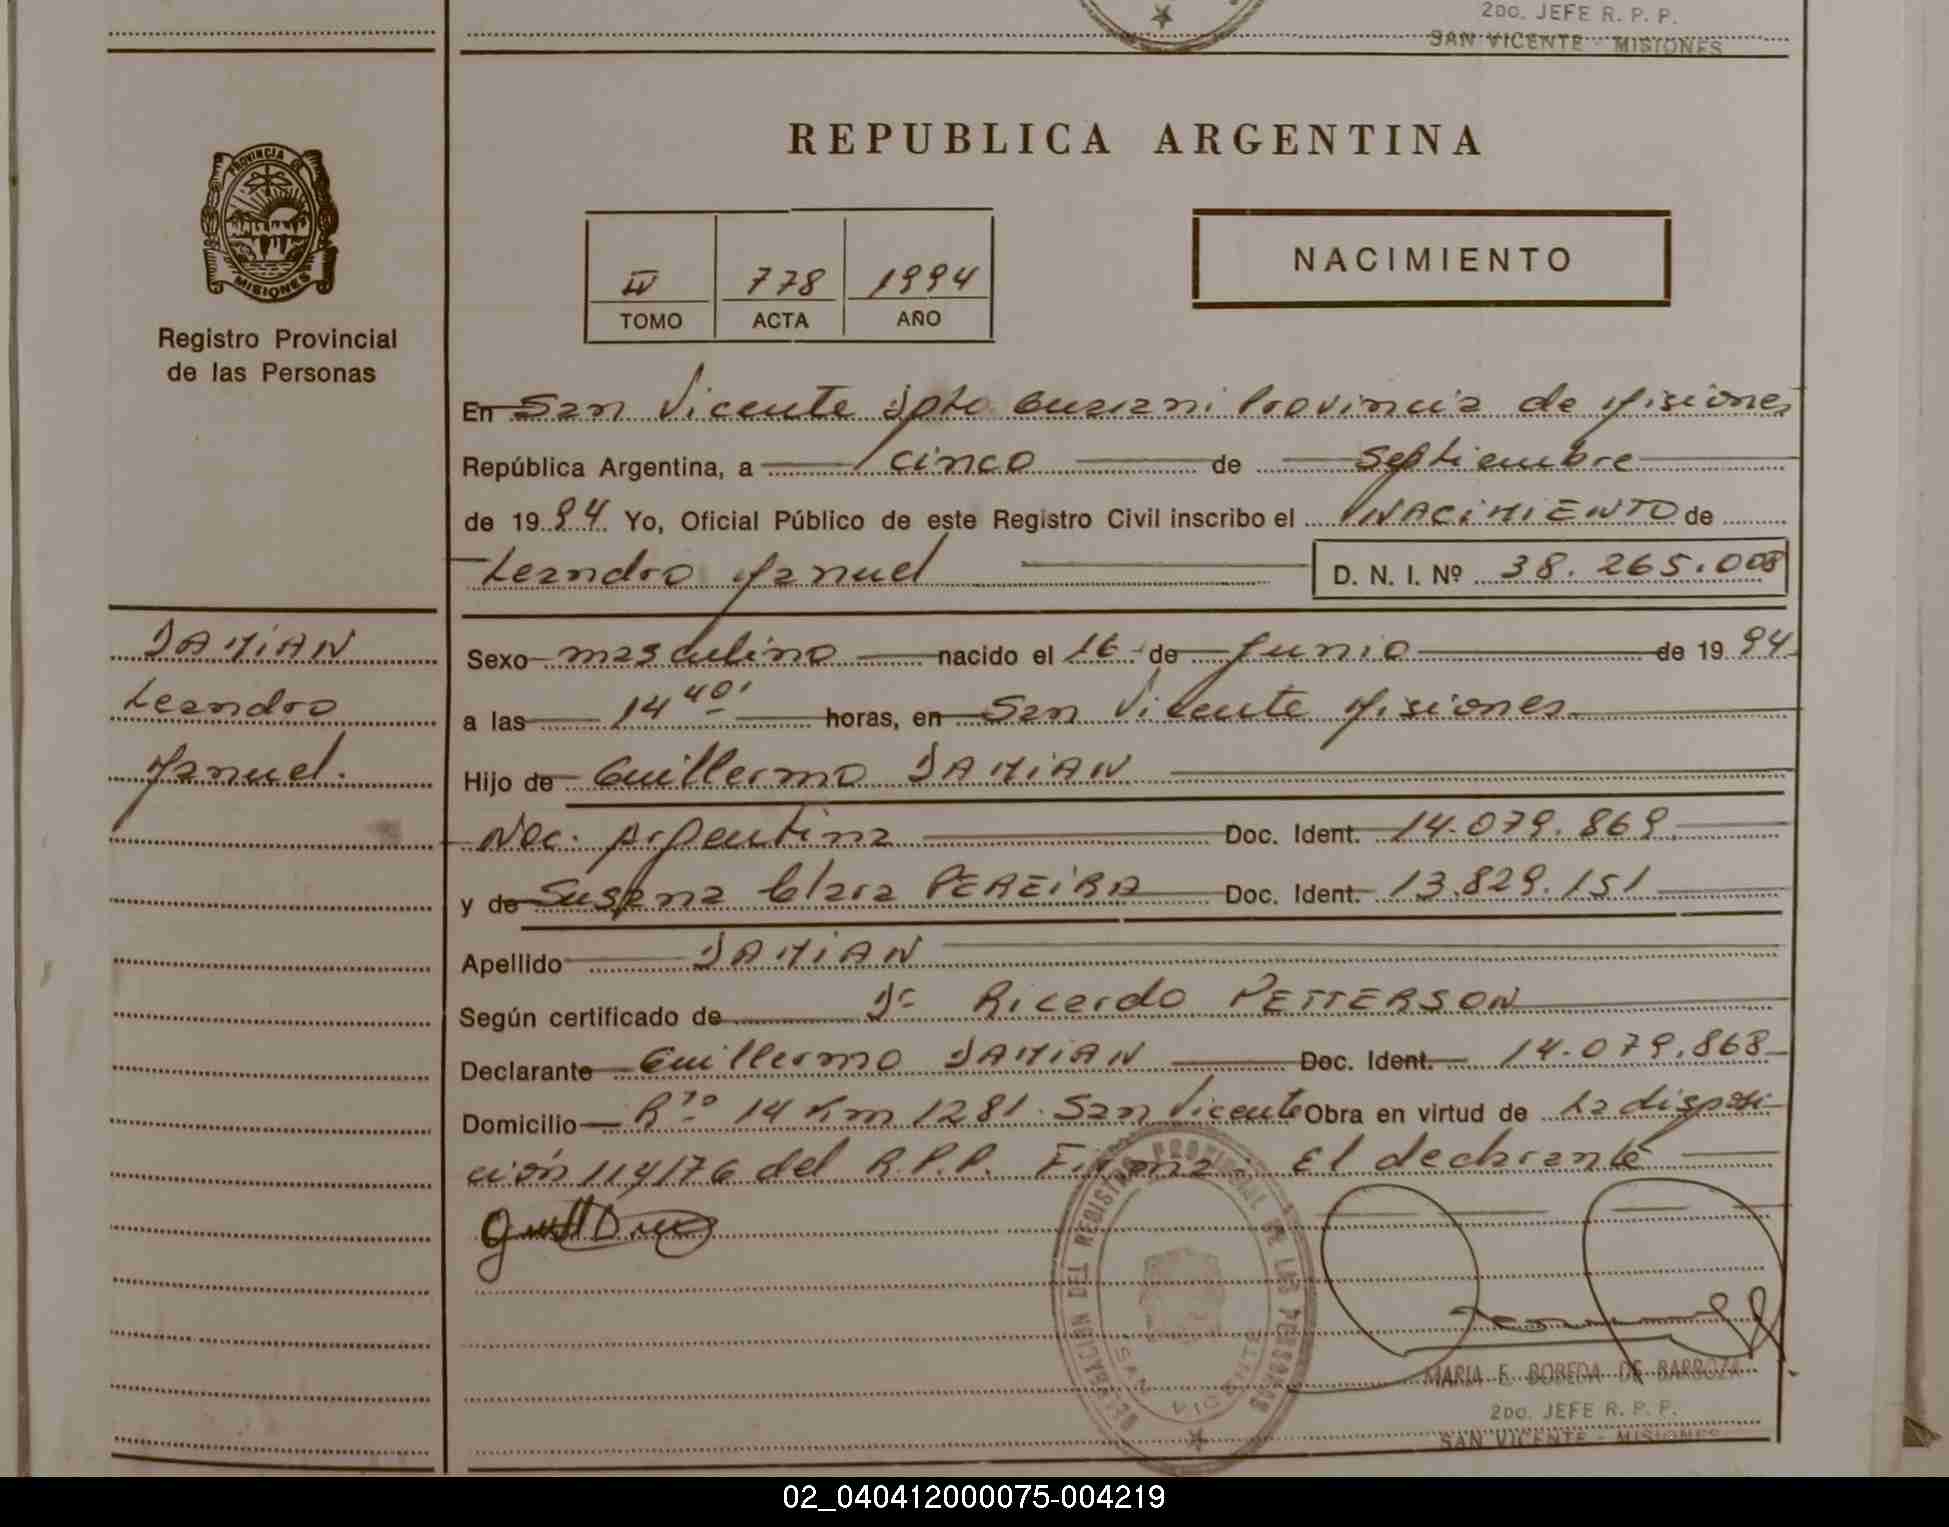 2DO. JEFE R. P. P.
SAN VICENTE - MISIONES
PROVINCIA DE
MISIONES
Registro Provincial
de las Personas
REPUBLICA ARGENTINA
IV 778 1994
TOMO ACTA AÑO
NACIMIENTO
En San Vicente Dpto Guarani Provincia de Misiones
República Argentina, a cinco de Septiembre
de 1994 Yo, Oficial Público de este Registro Civil inscribo el NACIMIENTO de
Leandro Manuel D. N. I. Nº 38.265.008
DAMIAN
Leandro
Manuel.
Sexo masculino nacido el 16 de Junio de 1994
a las 14 40' horas, en San Vicente Misiones
Hijo de Guillermo DAMIAN
Nac. Argentina Doc. Ident. 14.079.869
y de Susana Clara PEREIRA Doc. Ident. 13.829.151
Apellido DAMIAN
Según certificado de Dr Ricardo PETTERSON
Declarante Guillermo DAMIAN Doc. Ident. 14.079.868
Domicilio Rta 14 Km 1281. San Vicente Obra en virtud de la disposi
ción 114/76 del R.P.P. Firma: El declarante
DELEGACION DEL REGISTRO PROVINCIAL DE LAS PERSONAS
SAN VICENTE
MARIA E. BOBEDA DE BARBOZA
2DO. JEFE R. P. P.
SAN VICENTE - MISIONES
02_040412000075-004219